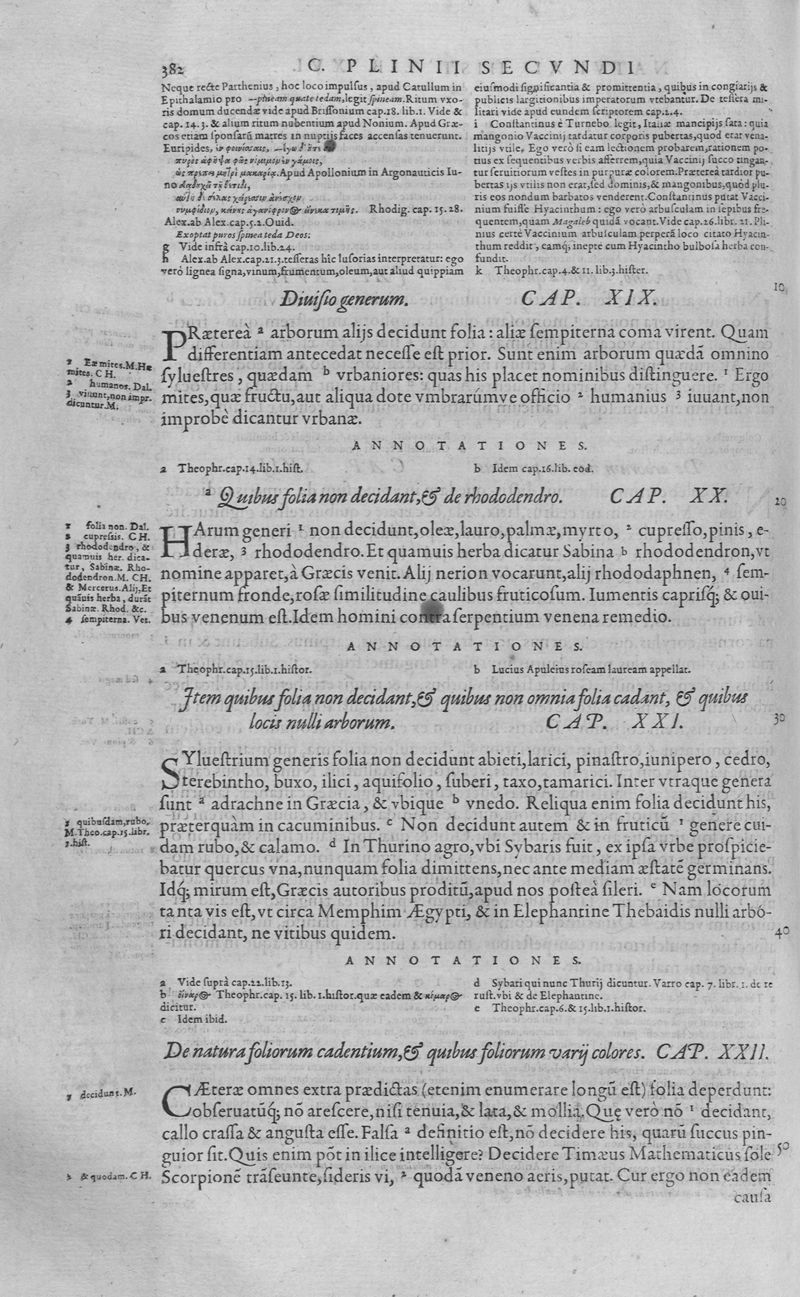 382 C. PLINII SECVNDI
Neque recte Parthenius, hoc loco impulsus, apud Catullum in
Epithalamio pro —pineam quate tedam, legit spineam. Ritum vxo-
ris domum ducendæ vide apud Brissonium cap. 18. lib. 1. Vide &
cap. 14. 3. & alium ritum nubentium apud Nonium. Apud Græ-
cos etiam sponsarū matres in nuptijs faces accensas tenuerunt.
Euripides,
Apud Apollonium in Argonauticis Iu-
no
Rhodig. cap. 15. 28.
Alex. ab Alex. cap. 5. 2. Ouid.
Exoptat puros spinea teda Deos:
g Vide infrà cap. 10. lib. 24.
h Alex. ab Alex. cap. 21. 3. tesseras hîc lusorias interpretatur: ego
verò lignea signa, vinum, frumentum, oleum, aut aliud quippiam
eiusmodi significantia & promittentia, quibus in congiarijs &
publicis largitionibus imperatorum vtebantur. De tessera mi-
litari vide apud eundem scriptorem cap. 2. 4.
i Constantinus è Turnebo legit, Italiæ mancipijs sata: quia
mangonio Vaccinij tardatur corporis pubertas, quod erat vena-
litijs vtile, Ego verò si eam lectionem probarem, rationem po-
tius ex sequentibus verbis afferrem, quia Vaccinij succo tingan-
tur seruitiorum vestes in purpuræ colorem. Præterea tardior pu-
bertas ijs vtilis non erat, sed dominis, & mangonibus, quòd plu-
ris eos nondum barbatos venderent. Constantinus putat Vacci-
nium fuisse Hyacinthum: ego verò arbusculam in sepibus fre-
quentem, quam Amagaleb quidā vocant. Vide cap. 26. libr. 21. Pli-
nius certè Vaccinium arbusculam perperā loco citato Hyacin-
thum reddit, eamq; inepte cum Hyacintho bulbosa herba con-
fundit.
k Theophr. cap. 4. & 11. lib. 3. hister.
10
Diuisio generum. CAP. XIX.
PRæterea a arborum alijs decidunt folia: aliæ sempiterna coma virent. Quam
differentiam antecedat necesse est prior. Sunt enim arborum quædā omnino
syluestres, quædam b vrbaniores: quas his placet nominibus distinguere. 1 Ergo
mites, quæ fructu, aut aliqua dote vmbrarúmve officio 2 humanius 3 iuuant, non
improbè dicantur vrbanæ.
1 Eæ mites. M. Hæ
mites. C H.
2 humanos. Dal.
3 viuunt, non impr.
dicuntur. M.
ANNOTATIONES.
a Theophr. cap. 14. lib. 1. hist.
b Idem cap. 16. lib. eod.
a Quibus folia non decidant, & de rhododendro. CAP. XX.
20
HArum generi 1 non decidunt, oleæ, lauro, palmæ, myrto, 2 cupresso, pinis, e-
deræ, 3 rhododendro. Et quamuis herba dicatur Sabina b rhododendron, vt
nomine apparet, à Græcis venit. Alij nerion vocarunt, alij rhododaphnen, 4 sem-
piternum fronde, rosæ similitudine caulibus fruticosum. Iumentis caprisq; & oui-
bus venenum est. Idem homini contra serpentium venena remedio.
1 folia non. Dal.
2 cupressis. C H.
3 rhododendro, &
quamuis her. dica-
tur, Sabinæ. Rho-
dodendron. M. CH.
& Mercerus. Alij, Et
quāuis herba, durāt
Sabinæ. Rhod. &c.
4 sempiterna. Vet.
ANNOTATIONES.
a Theophr. cap. 15. lib. 1. histor.
b Lucius Apuleius roseam lauream appellat.
Item quibus folia non decidant, & quibus non omnia folia cadant, & quibus
locis nulli arborum. CAP. XXI.
30
SYluestrium generis folia non decidunt abieti, larici, pinastro, iunipero, cedro,
terebintho, buxo, ilici, aquifolio, suberi, taxo, tamarici. Inter vtraque genera
sunt a adrachne in Græcia, & vbique b vnedo. Reliqua enim folia decidunt his,
præterquàm in cacuminibus. c Non decidunt autem & in fruticū 1 genere cui-
dam rubo, & calamo. d In Thurino agro, vbi Sybaris fuit, ex ipsa vrbe prospicie-
batur quercus vna, nunquam folia dimittens, nec ante mediam æstatē germinans.
Idq; mirum est, Græcis autoribus proditū, apud nos posteà sileri. e Nam locorum
tanta vis est, vt circa Memphim Ægypti, & in Elephantine Thebaidis nulli arbo-
ri decidant, ne vitibus quidem.
1 quibusdam, rubo,
M. Theo. cap. 15. libr.
1. hist.
40
ANNOTATIONES.
a Vide suprà cap. 22. lib. 13.
b Theophr. cap. 15. lib. 1. histor. quæ eadem &
dicitur.
c Idem ibid.
d Sybari qui nunc Thurij dicuntur. Varro cap. 7. libr. 1. de re
rust. vbi & de Elephantine.
e Theophr. cap. 6. & 15. lib. 1. histor.
De natura foliorum cadentium, & quibus foliorum varij colores. CAP. XXII.
CÆteræ omnes extra prædictas (etenim enumerare longū est) folia deperdunt:
obseruatūq; nō arescere, nisi tenuia, & lata, & mollia. Quę verò nō 1 decidant,
callo crassa & angusta esse. Falsa a definitio est, nō decidere his, quarū succus pin-
guior sit. Quis enim pōt in ilice intelligere? Decidere Timæus Mathematicus sole
Scorpionē trāseunte, sideris vi, 2 quodā veneno aeris, putat. Cur ergo non eadem
1 decidunt. M.
2 & quodam. C H.
50
causa